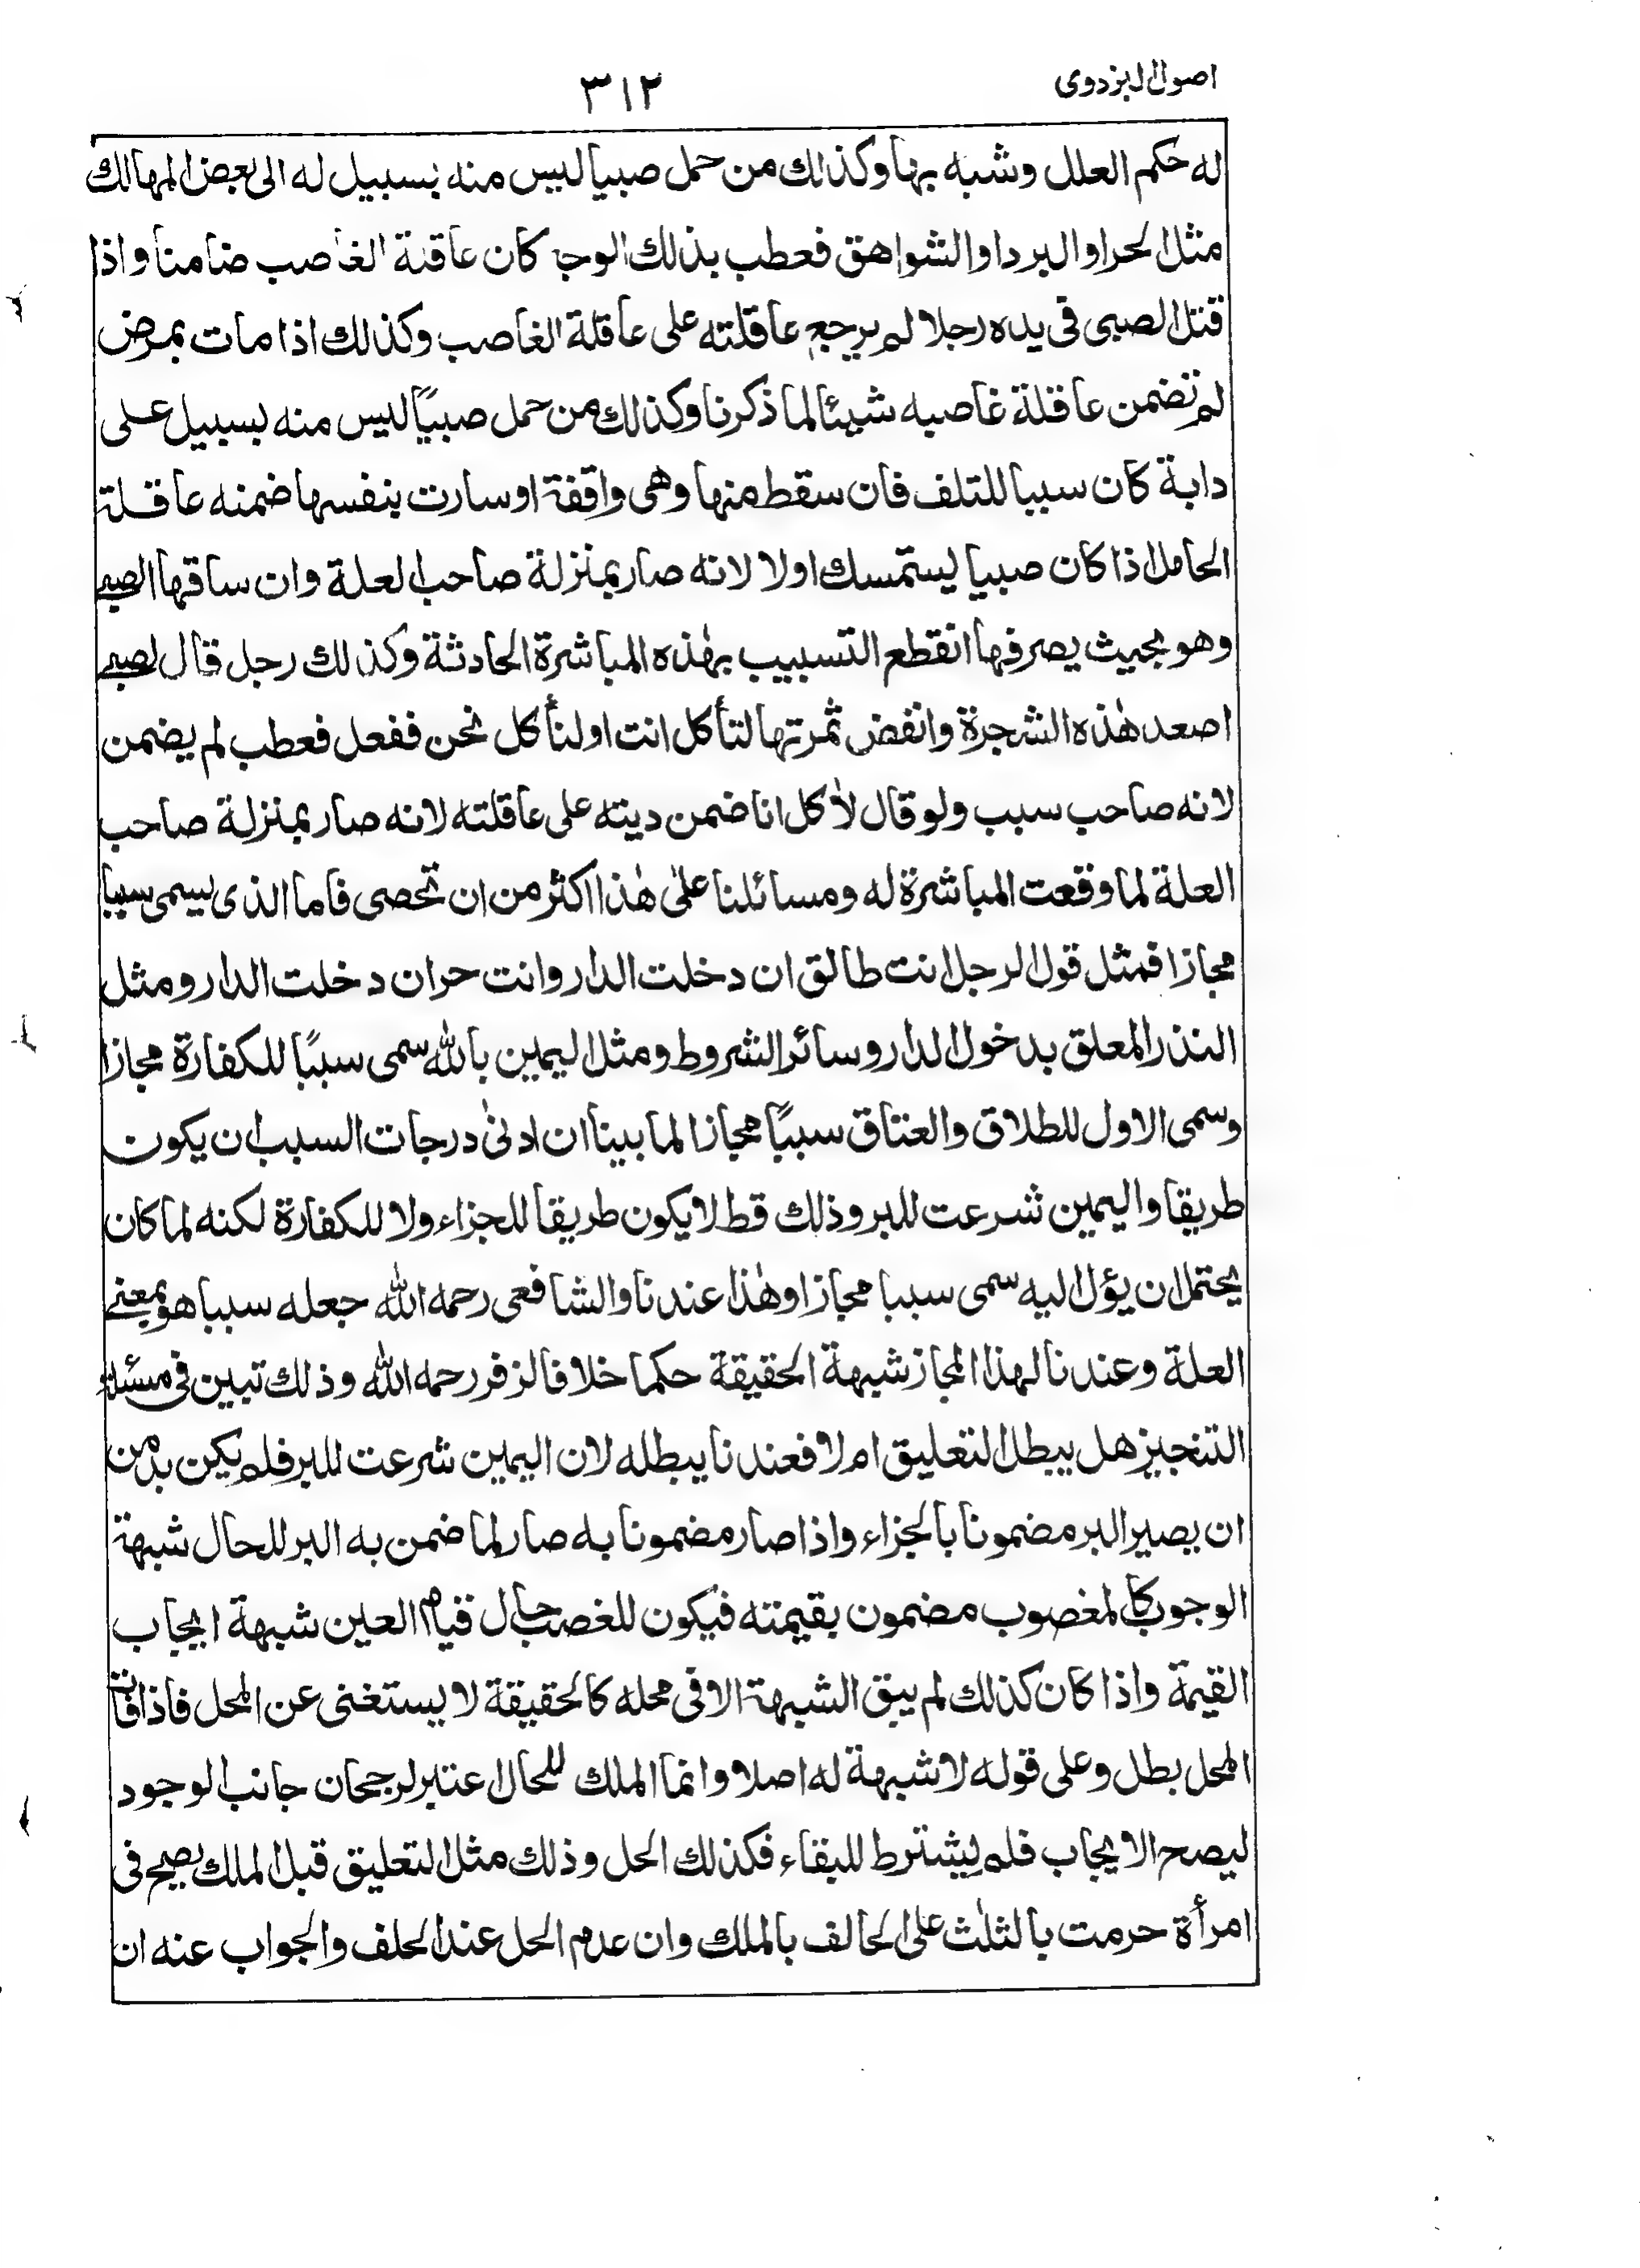 اصول البزدوی
٣١٢
له حكم العلل وشبه بها وكذلك من حمل صبيا ليس منه بسبيل له الى بعض المهالك
مثل الحر او البرد او الشواهق فعطب بذلك الوجه كان عاقلة الغاصب ضامنا واذا
قتل الصبى فى يده رجلا لم يرجع عاقلته على عاقلة الغاصب وكذلك اذا مات بمرض
لم تضمن عاقلة غاصبه شيئا لما ذكرنا وكذلك من حمل صبيًا ليس منه بسبيل على
دابة كان سببا للتلف فان سقط منها وهى واقفة او سارت بنفسها ضمنه عاقلة
الحامل اذا كان صبيا يستمسك اولا لانه صار بمنزلة صاحب العلة وان ساقها الصبى
وهو بحيث يصرفها انقطع التسبيب بهٰذه المباشرة الحادثة وكذلك رجل قال لصبى
اصعد هٰذه الشجرة وانفض ثمرتها لتأكل انت او لنأكل نحن ففعل فعطب لم يضمن
لانه صاحب سبب ولو قال لأكل انا ضمن ديته على عاقلته لانه صار بمنزلة صاحب
العلة لما وقعت المباشرة له ومسائلنا علىٰ هٰذا اكثر من ان تحصى فاما الذى يسمى سببا
مجازا فمثل قول الرجل انت طالق ان دخلت الدار وانت حر ان دخلت الدار ومثل
النذر المعلق بدخول الدار وسائر الشروط ومثل اليمين بالله سمى سببًا للكفارة مجازا
وسمى الاول للطلاق والعتاق سببًا مجازا لما بينا ان ادنىٰ درجات السبب ان يكون
طريقا واليمين شرعت للبر وذلك قط لا يكون طريقا للجزاء ولا للكفارة لكنه لما كان
يحتمل ان يؤل اليه سمى سببا مجازا وهٰذا عندنا والشافعى رحمه الله جعله سببا هو بمعنى
العلة وعندنا لهذا المجاز شبهة الحقيقة حكما خلافا لزفر رحمه الله وذلك تبين فى مسئلة
التنجيز هل يبطل التعليق ام لا فعندنا يبطله لان اليمين شرعت للبر فلم يكن بد من
ان يصير البر مضمونا بالجزاء واذا صار مضمونا به صار لما ضمن به البر للحال شبهة
الوجوب كالمغصوب مضمون بقيمته فيكون للغصب حال قيام العين شبهة ايجاب
القيمة واذا كان كذلك لم يبق الشبهة الا فى محله كالحقيقة لا يستغنى عن المحل فاذا فات
المحل بطل وعلى قوله لا شبهة له اصلا وانما الملك للحال اعتبر لرجحان جانب الوجود
ليصح الايجاب فلم يشترط للبقاء فكذلك الحل وذلك مثل التعليق قبل الملك يصح فى
امرأة حرمت بالثلٰث على الحالف بالملك وان عدم الحل عند الحلف والجواب عنه ان